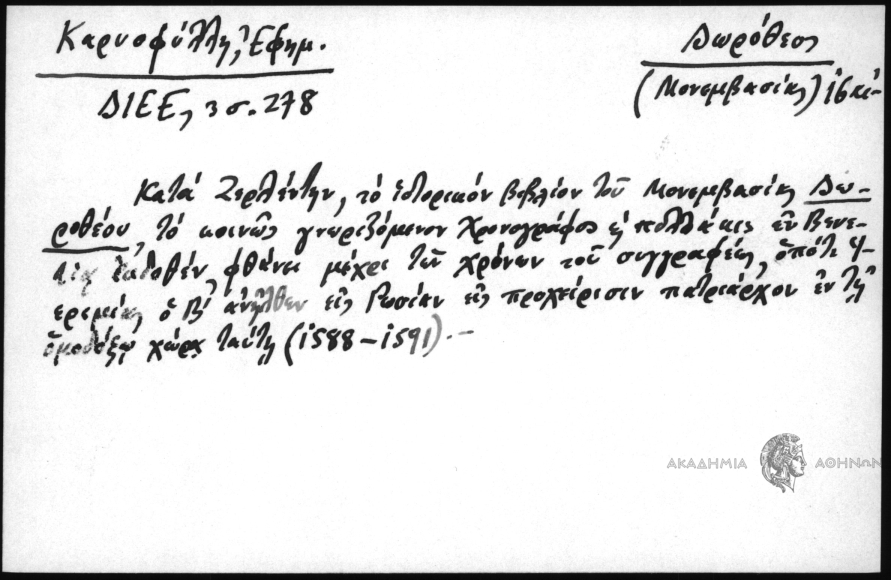 Καρυοφύλλη, Ἐφημ.
ΔΙΕΕ, 3 σ. 278
Δωρόθεος
(Μονεμβασίας) ις΄
Κατά Ζερλέντην, τό ἱστορικόν βιβλίον τοῦ Μονεμβασίας Δω-
ροθέου, τό κοινῶς γνωριζόμενον Χρονογράφος πολλάκις ἐν Βενε-
τίᾳ ἐκδοθέν, φθάνει μέχρι τῶν χρόνων τοῦ συγγραφέως, ὁπότε Ἱ-
ερεμίας ὁ Β΄ ἀνῆλθεν εἰς Ρωσίαν εἰς προχείρισιν πατριάρχου ἐν τῇ
ὁμοδόξῳ χώρᾳ ταύτῃ (1588-1591).-
ΑΚΑΔΗΜΙΑ ΑΘΗΝΩΝ